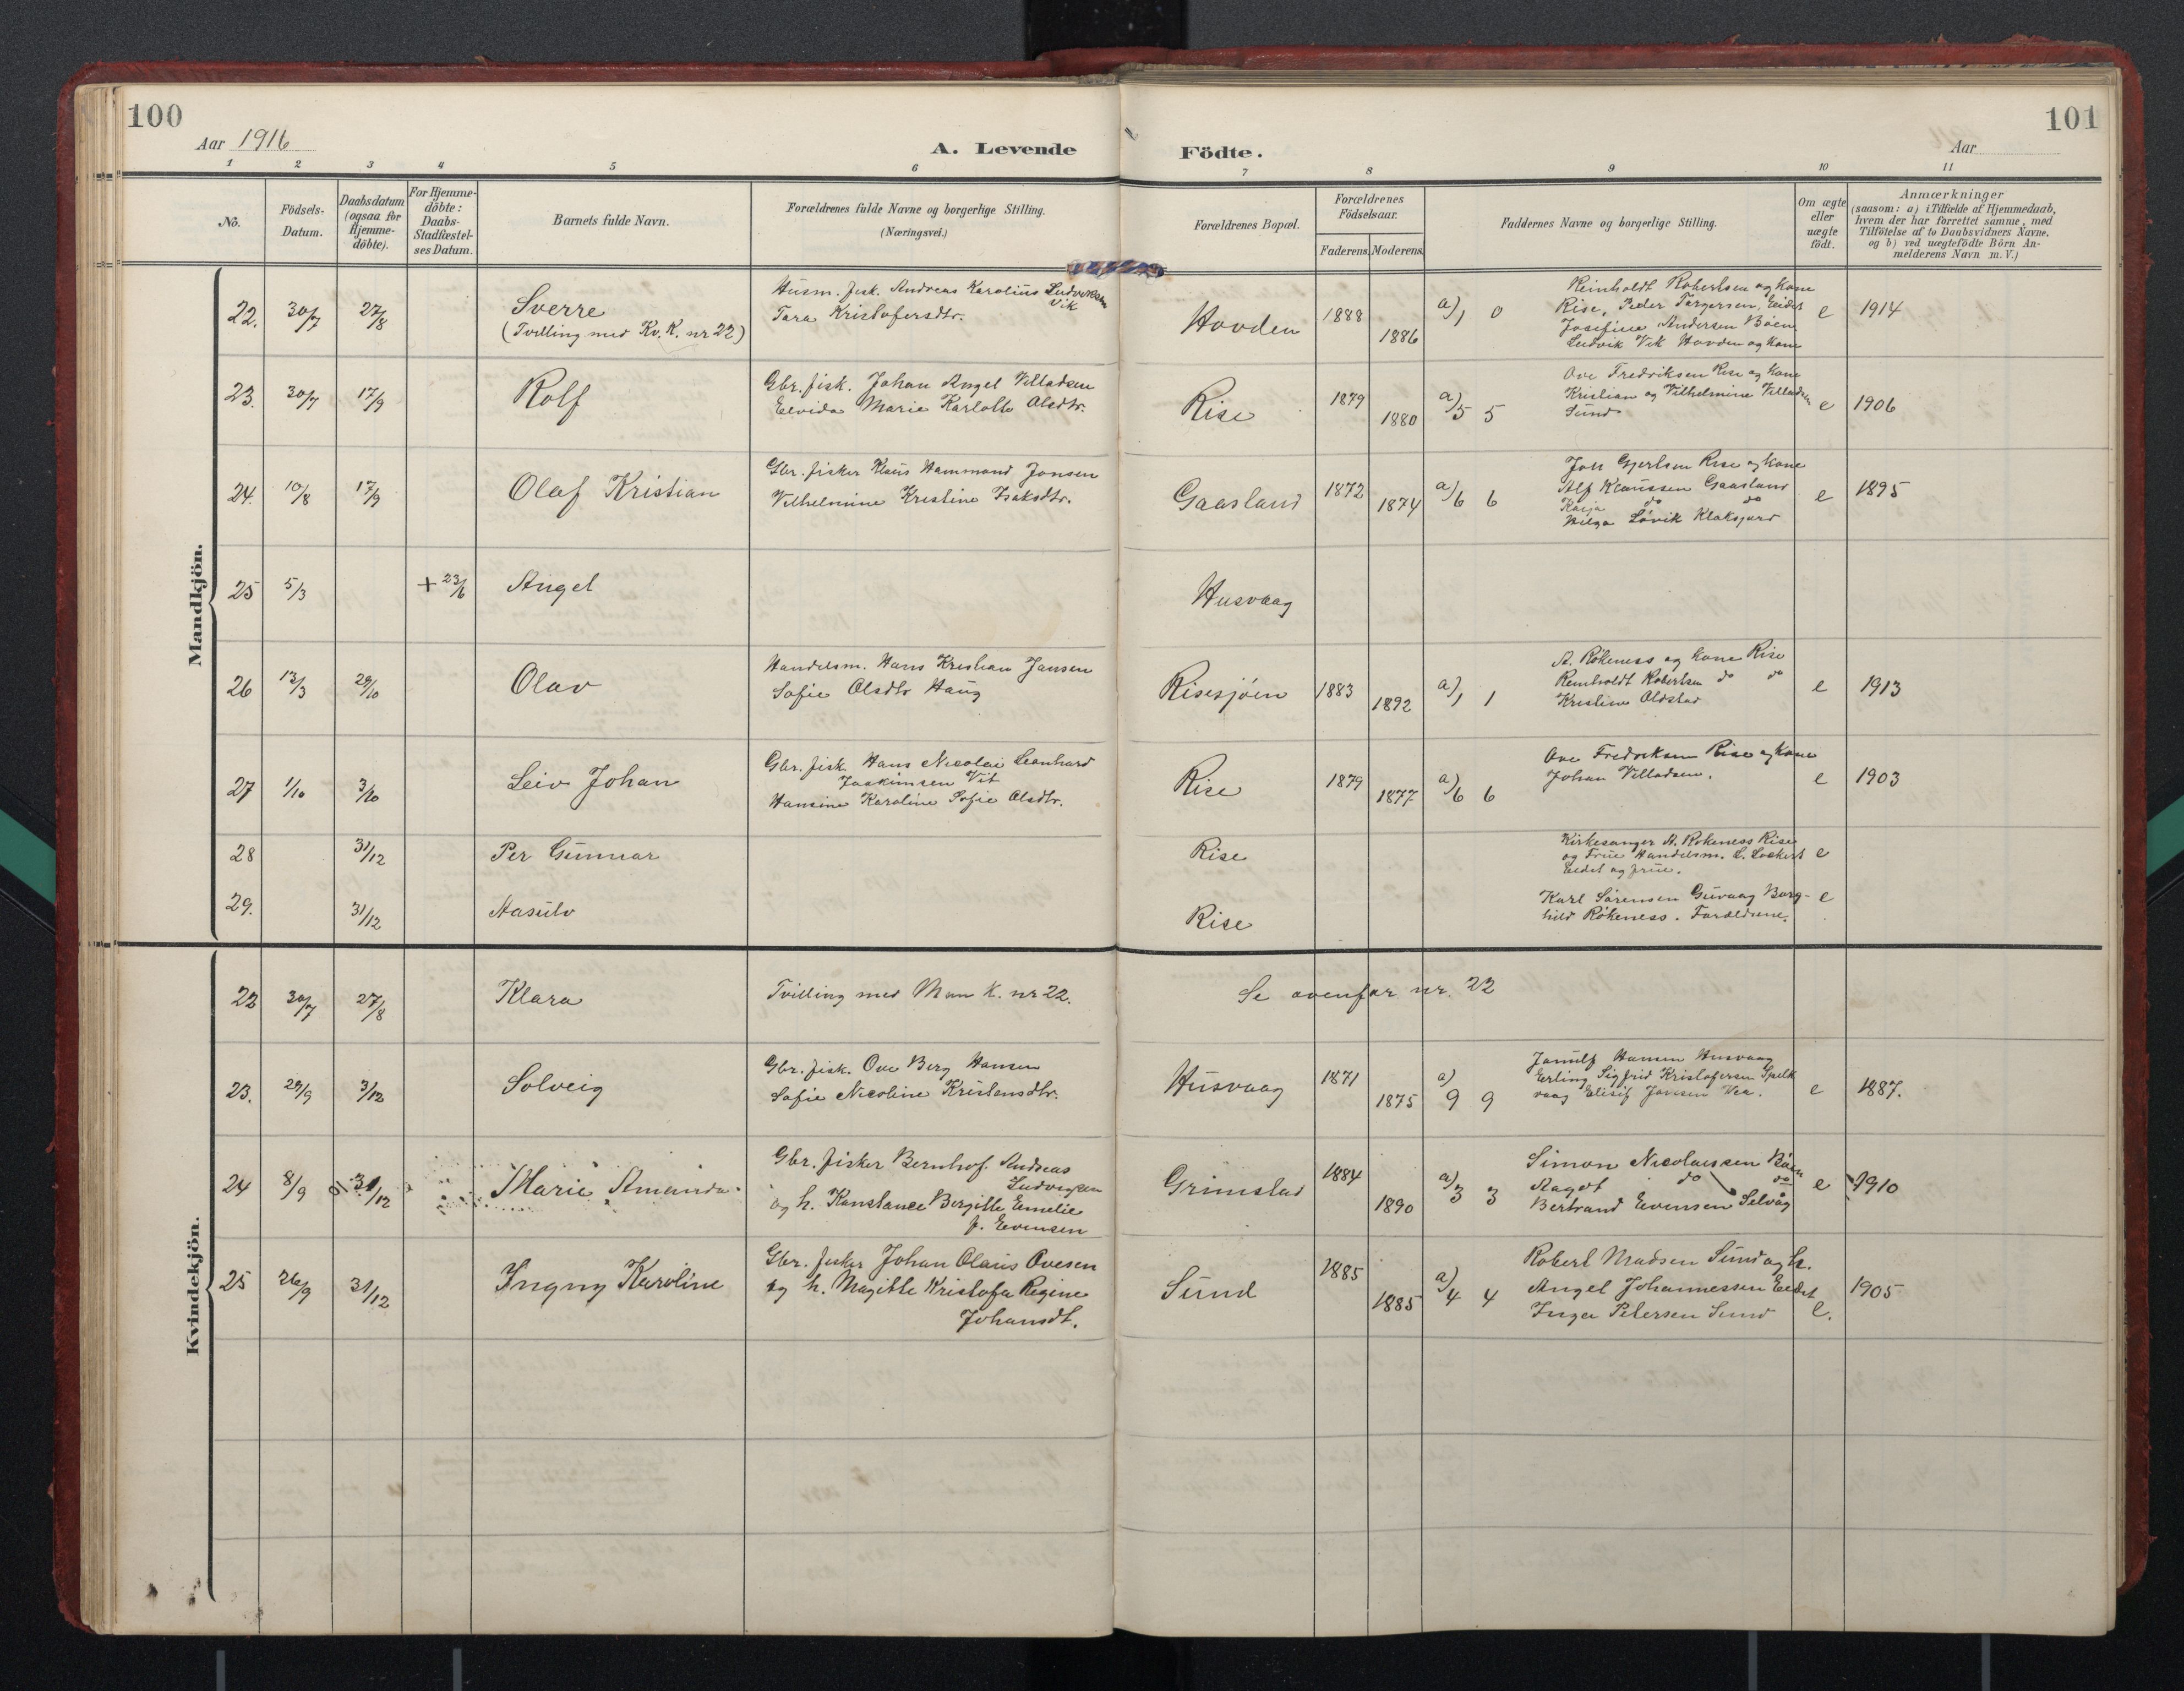 100
101
Aar 1916
A. Levende
Födte.
Aar
1 2 3 4 5 6 7 8 9 10 11
No.
Födsels-
Datum.
Daabsdatum
(ogsaa for
Hjemme-
döbte).
For Hjemme-
döbte:
Daabs-
Stadfæstel-
ses Datum.
Barnets fulde Navn.
Forældrenes fulde Navne og borgerlige Stilling.
(Næringsvei.)
Forældrenes Bopæl.
Forældrenes
Födselsaar.
Faderens. Moderens.
Faddernes Navne og borgerlige Stilling.
Om ægte
eller
uægte
födt.
Anmærkninger
(saasom: a) i Tilfælde af Hjemmedaab,
hvem der har forrettet samme, med
Tilföielse af to Daabsvidners Navne,
og b) ved uægtefödte Börn An-
melderens Navn m.V.)
Mandkjön.
22. 30/7 27/8
Sverre
(Tvilling med Kv. K. nr 22)
Husm. fisk. Andreas Karolius Ludviksen
Vik
Tara Kristofersdtr.
Hovden
1888
1886
a)1 0
Reinholdt Robertsen og kone
Rise, Peder Torgersen, Eidet
Josefine Andersen Böen
Ludvik Vik Hovden og kone
e
1914
23. 30/7 17/9
Rolf
Gbr. fisk. Johan Angel Villadsen
Elvida Marie Karlotte Olsdtr.
Rise
1879
1880
a)5 5
Ove Fredriksen Rise og kone
Kristian og Vilhelmine Villadsen
Sund
e
1906
24. 10/8 17/9
Olaf Kristian
Gbr. fisker Klaus Hammond Jonsen
Vilhelmine Kristine Isaksdtr.
Gaasland
1872
1874
a)6 6
Joh Gjertsen Rise og kone
Alf Klaussen Gaasland
Kaija do do
Helga Lövik Klaksjord
e
1895
25 5/3
+ 23/6
Angel
Husvaag
26 13/3 29/10
Olav
Handelsm. Hans Kristian Jansen
Sofie Olsdtr Haug
Risesjöen
1883
1892
a)1 1
A. Rökeness og kone Rise
Reinholdt Robertsen do do
Kristine Oldstad
e
1913
27 1/10 3/10
Leiv Johan
Gbr. fisk. Hans Nicolai Leonhard
Joakimsen Vik
Hansine Karoline Sofie Olsdtr.
Rise
1879
1877
a)6 6
Ove Fredriksen Rise og kone
Johan Villadsen.
e
1903
28 31/12
Per Gunnar
Rise
Kirkesanger A. Rökeness Rise
og Frue Handelsm. L. Lockert
Eidet og frue.
e
29. 31/12
Aasulv
Rise
Karl Sörensen Guvaag Borg-
hild Rökeness. Forældrene.
e
Kvindekjön.
22 30/7 27/8
Klara
Tvilling med Man K. nr 22.
Se ovenfor nr. 22
23. 29/9 3/12
Solveig
Gbr. fisk. Ove Berg Hansen
Sofie Nicoline Kristensdtr.
Husvaag
1871
1875
a) 9 9
Hansen Husvaag
Erling Sigfrid Kristofersen Spelk
vaag Elisif Jansen Vea.
e
1887.
24 8/9 31/12
Marie Amanda
Gbr. fisker Bernhof. Andreas
Ludvigsen
og h. Konstance Bergitte Emelie
f. Evensen
Grimstad
1884
1890
a)3 3
Simon Nicolaissen Böen
Aagot do do
Bertrand Evensen Selvåg
e
1910
25 26/9 31/12
Ingny Karoline
Gbr. fisker Johan Olaus Ovesen
og h. Magitte Kristofa Regine
Johansdt.
Sund
1885
1885
a)4 4
Robert Madsen Sund og h.
Angel Johannessen Eidet
Inga Petersen Sund
e.
1905